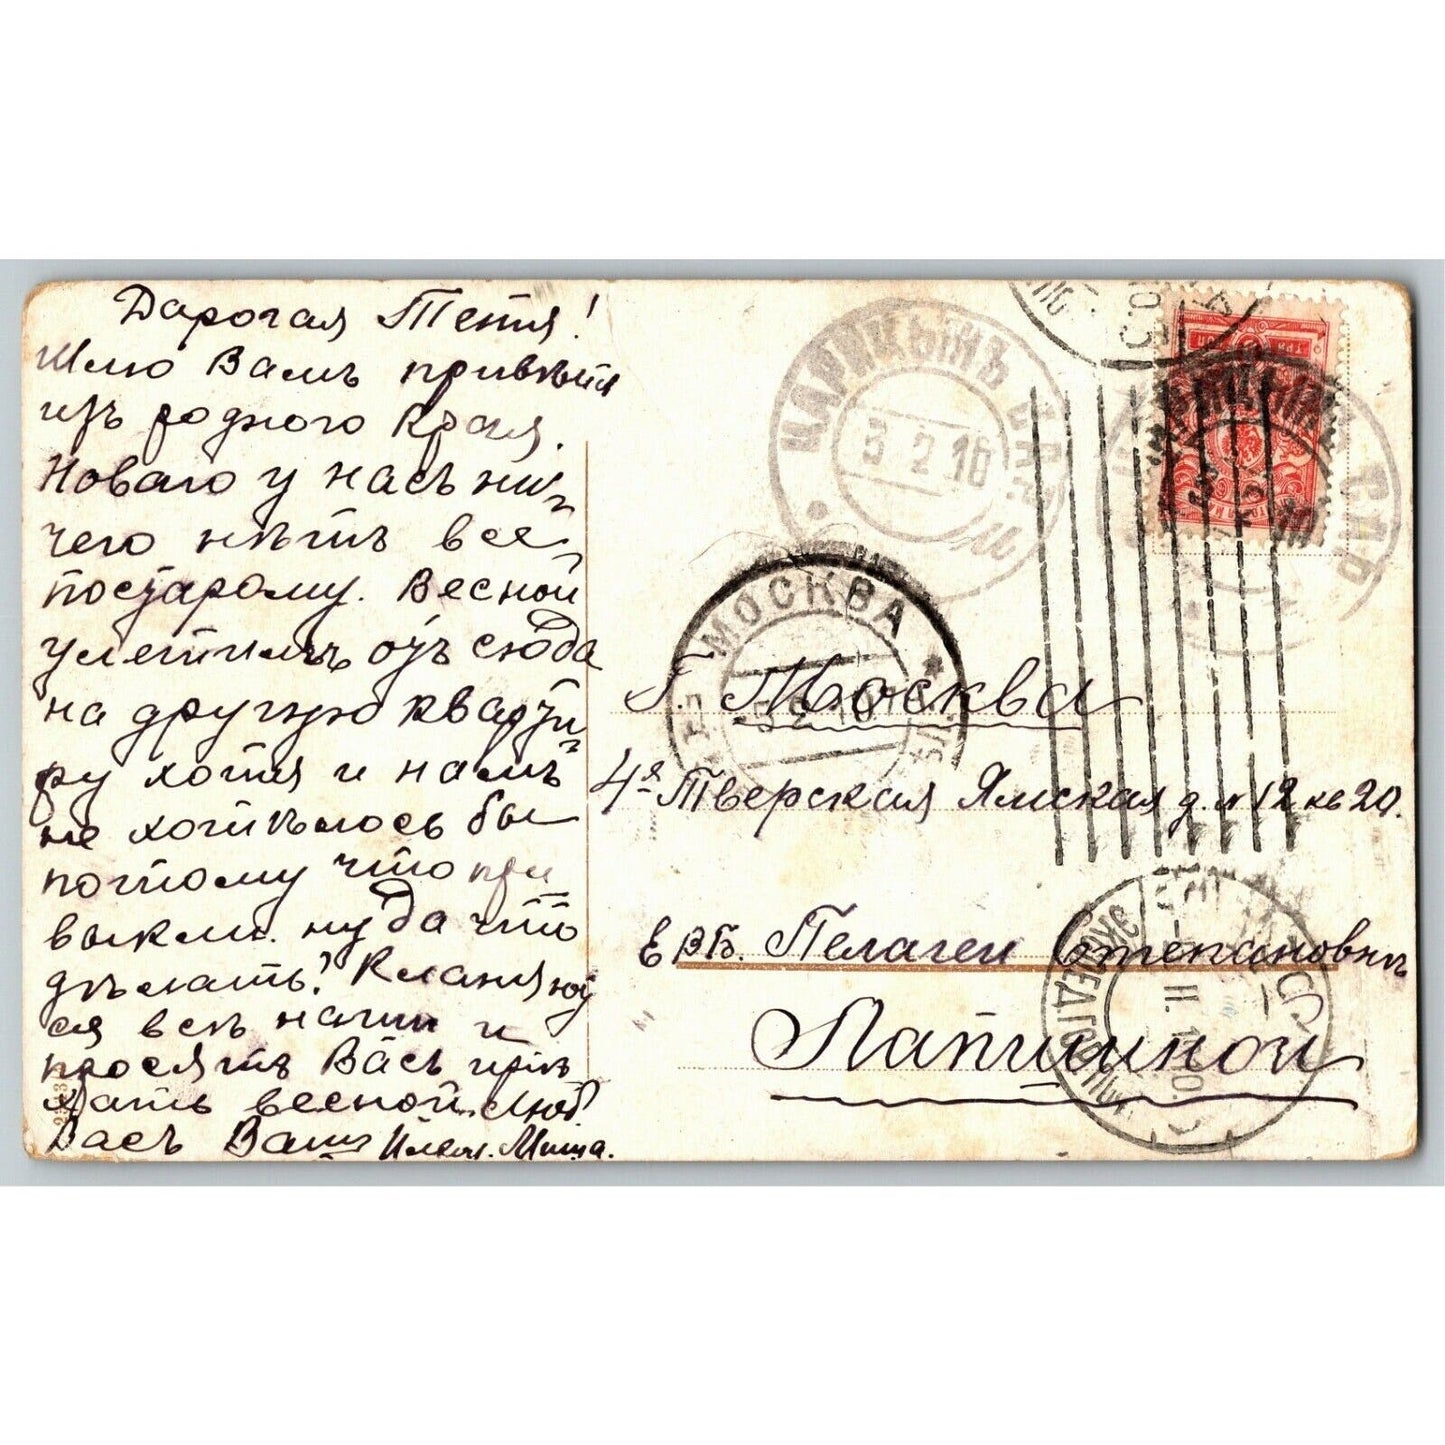 Дарогая Тетя!
Шлю Вамъ привѣтъ
изъ родного Края.
Новаго у насъ ни-
чего нѣтъ все
постарому. Весной
улетимъ отъ сюда
на другую кварти-
ру хотя и намъ
не хотѣлось бы
потому что при
выкли. ну да что
дѣлать? Кланяют
ся всѣ наши и
просятъ Васъ прiѣ
хать весной. Люб.
Васъ Вашъ Плем. Миша.
ЦАРИЦЫНЪ САР.
3 2 16
МОСКВА
Г. Москва
4я Тверская Ямская д. № 12 кв 20.
Е ВБ. Пелагеи Степановнѣ
Лапшиной